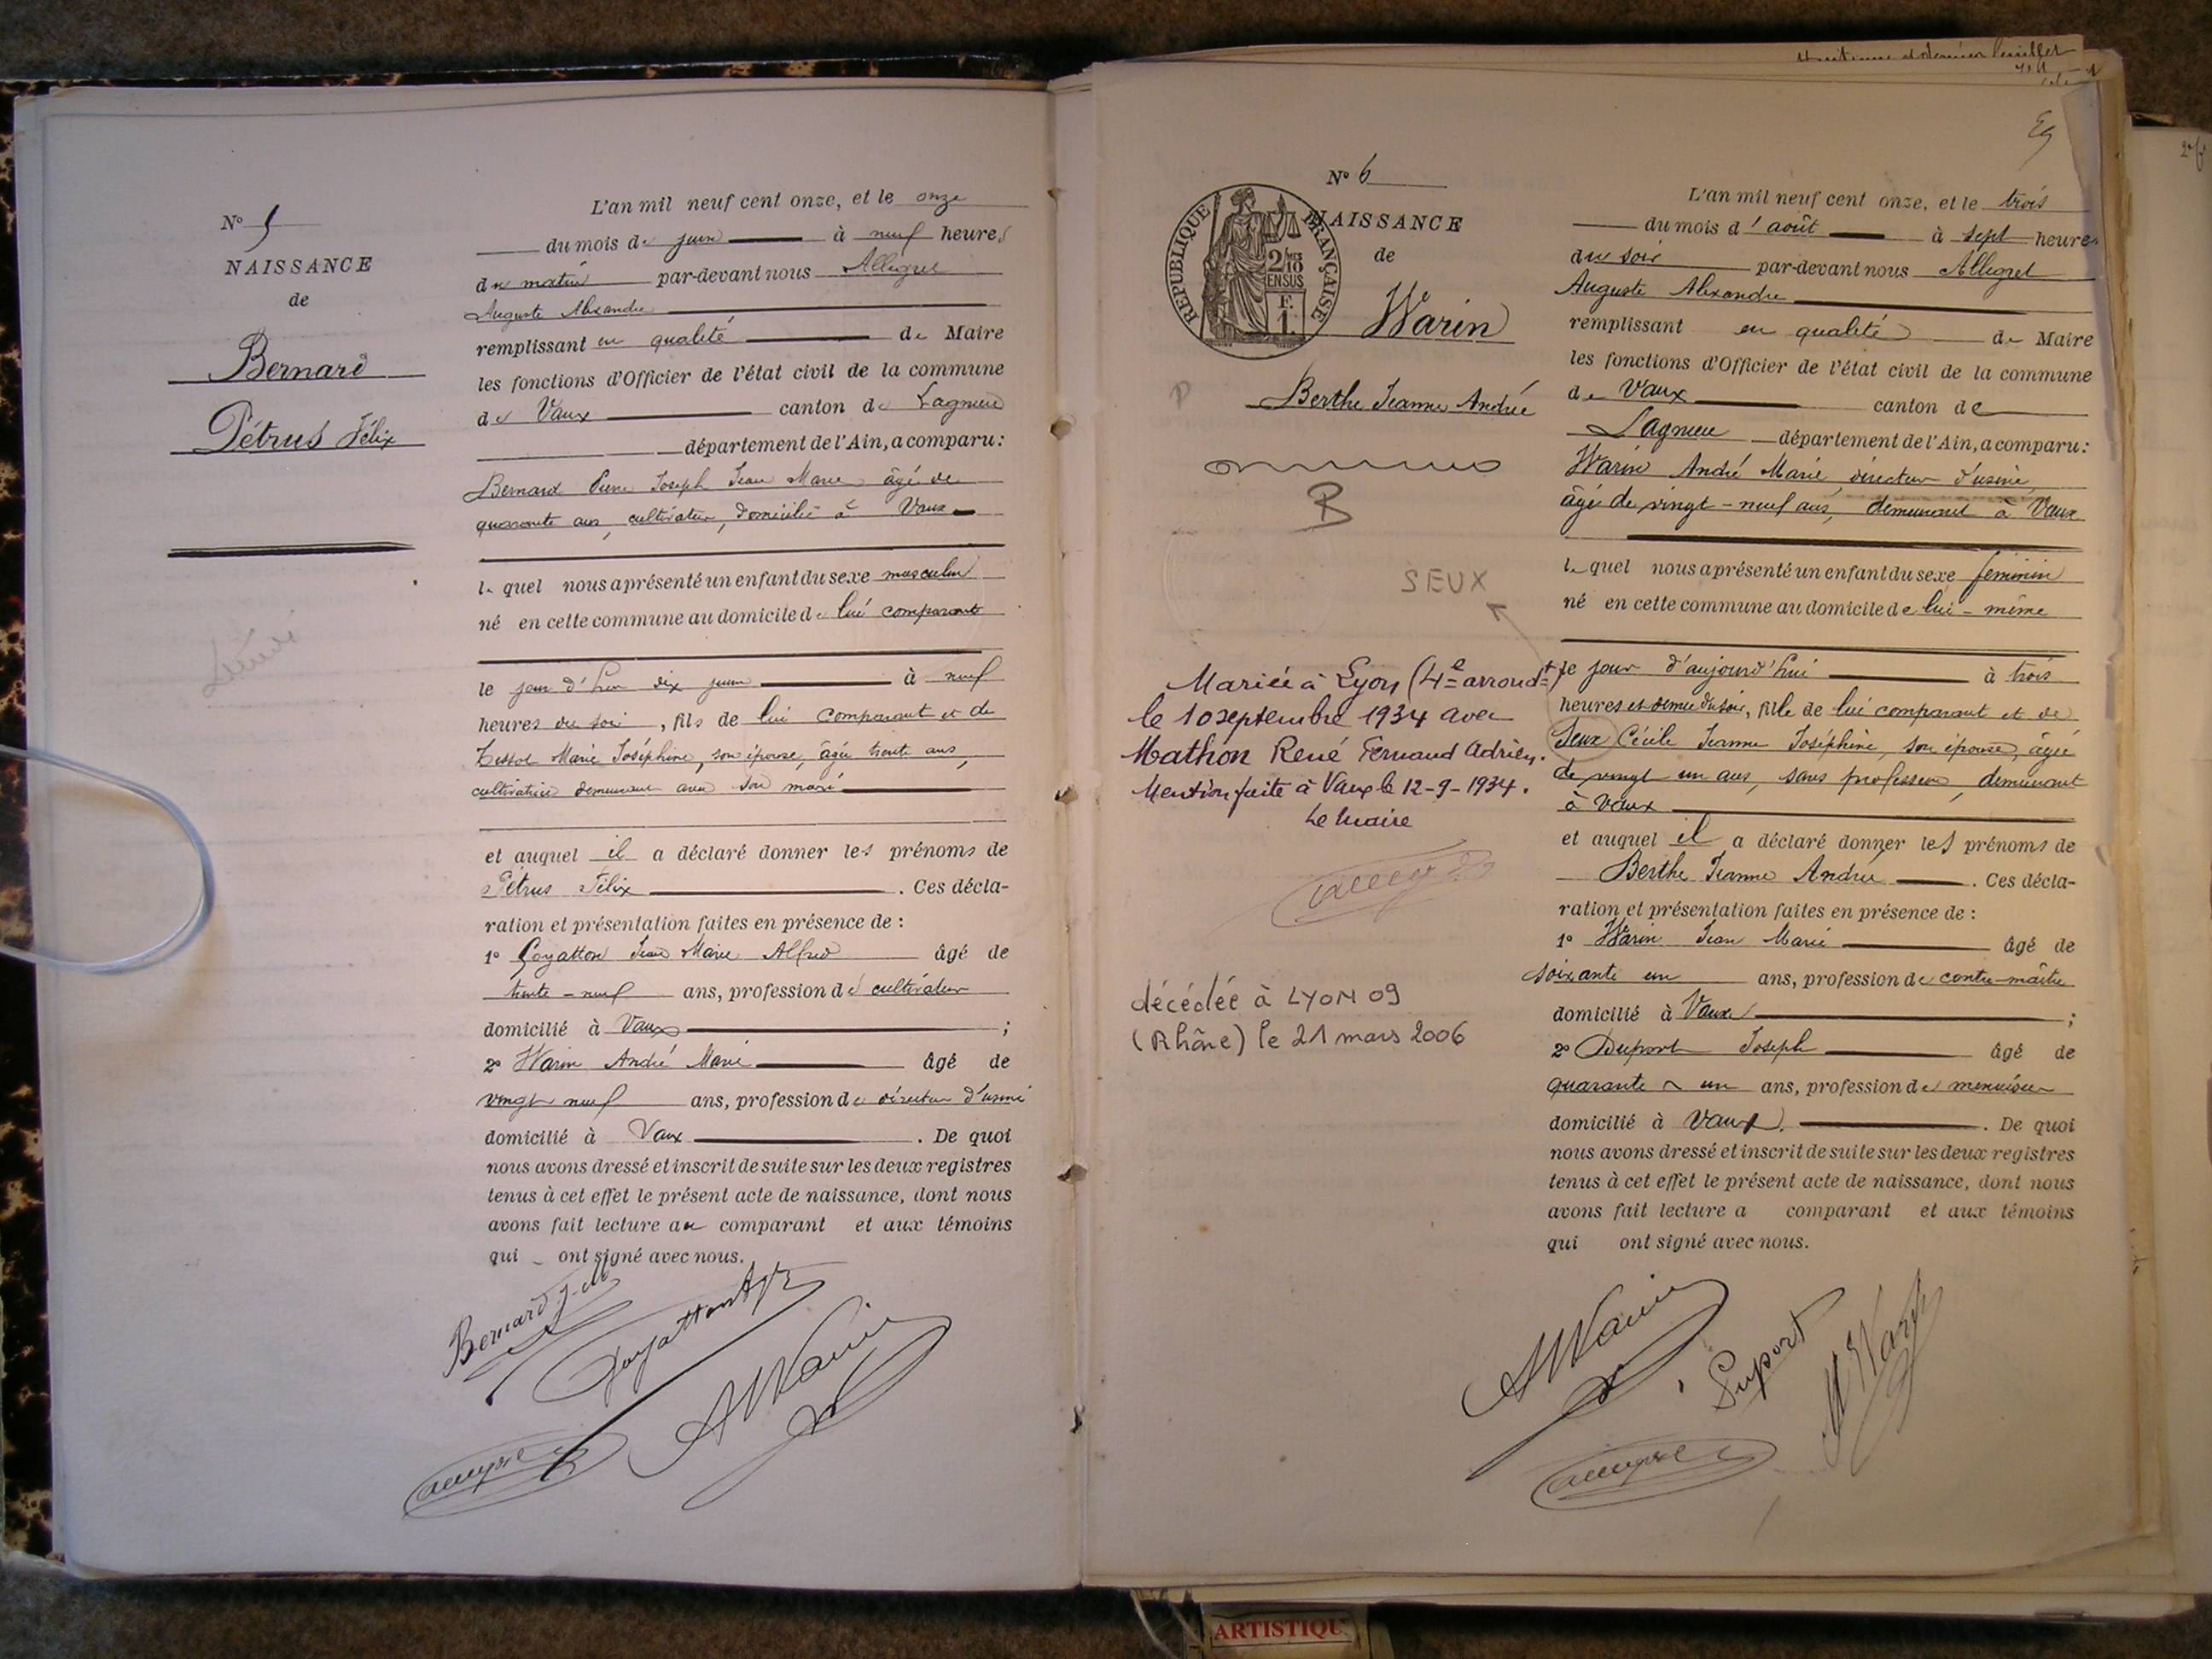 N° 5
NAISSANCE
de
Bernard
Pétrus Félix
L'an mil neuf cent onze, et le onze
du mois de juin à neuf heures
du matin par-devant nous Allegret
Auguste Alexandre
remplissant en qualité de Maire
les fonctions d'Officier de l'état civil de la commune
de Vaux canton de Lagnieu
département de l'Ain, a comparu :
Bernard Pierre Joseph Jean Marie âgé de
quarante ans, cultivateur, domicilié à Vaux
lequel nous a présenté un enfant du sexe masculin
né en cette commune au domicile de lui comparant
le jour d'hier dix juin à neuf
heures du soir, fils de lui comparant et de
Marie Joséphine, son épouse, âgée trente ans,
cultivatrice demeurant avec son mari
et auquel il a déclaré donner les prénoms de
Pétrus Félix . Ces décla-
ration et présentation faites en présence de :
1° Goyatton Jean Marie Alfred âgé de
trente-neuf ans, profession de cultivateur
domicilié à Vaux ;
2° Warin André Marie âgé de
vingt neuf ans, profession de directeur d'usine
domicilié à Vaux . De quoi
nous avons dressé et inscrit de suite sur les deux registres
tenus à cet effet le présent acte de naissance, dont nous
avons fait lecture au comparant et aux témoins
qui ont signé avec nous.
Bernard
Goyatton
AWarin
N° 6
RÉPUBLIQUE FRANÇAISE
2/10 EN SUS
F. 1.
NAISSANCE
de
Warin
Berthe Jeanne Andrée
B
SEUX
Mariée à Lyon (4e arrondt)
le 10 septembre 1934 avec
Mathon René Fernand Adrien.
Mention faite à Vaux le 12-9-1934.
Le Maire
décédée à LYON 09
(Rhône) le 21 mars 2006
L'an mil neuf cent onze, et le trois
du mois d'août à sept heures
du soir par-devant nous Allegret
Auguste Alexandre
remplissant en qualité de Maire
les fonctions d'Officier de l'état civil de la commune
de Vaux canton de
Lagnieu département de l'Ain, a comparu :
Warin André Marie, directeur d'usine,
âgé de vingt-neuf ans, demeurant à Vaux
lequel nous a présenté un enfant du sexe féminin
né en cette commune au domicile de lui-même
le jour d'aujourd'hui à trois
heures et demie du soir, fille de lui comparant et de
Seux Cécile Jeanne Joséphine, son épouse, âgée
de vingt un ans, sans profession, demeurant
à Vaux
et auquel il a déclaré donner les prénoms de
Berthe Jeanne Andrée . Ces décla-
ration et présentation faites en présence de :
1° Warin Jean Marie âgé de
soixante un ans, profession de contre-maître
domicilié à Vaux ;
2° Duport Joseph âgé de
quarante un ans, profession de menuisier
domicilié à Vaux . De quoi
nous avons dressé et inscrit de suite sur les deux registres
tenus à cet effet le présent acte de naissance, dont nous
avons fait lecture a comparant et aux témoins
qui ont signé avec nous.
AWarin
Duport
ARTISTIQU